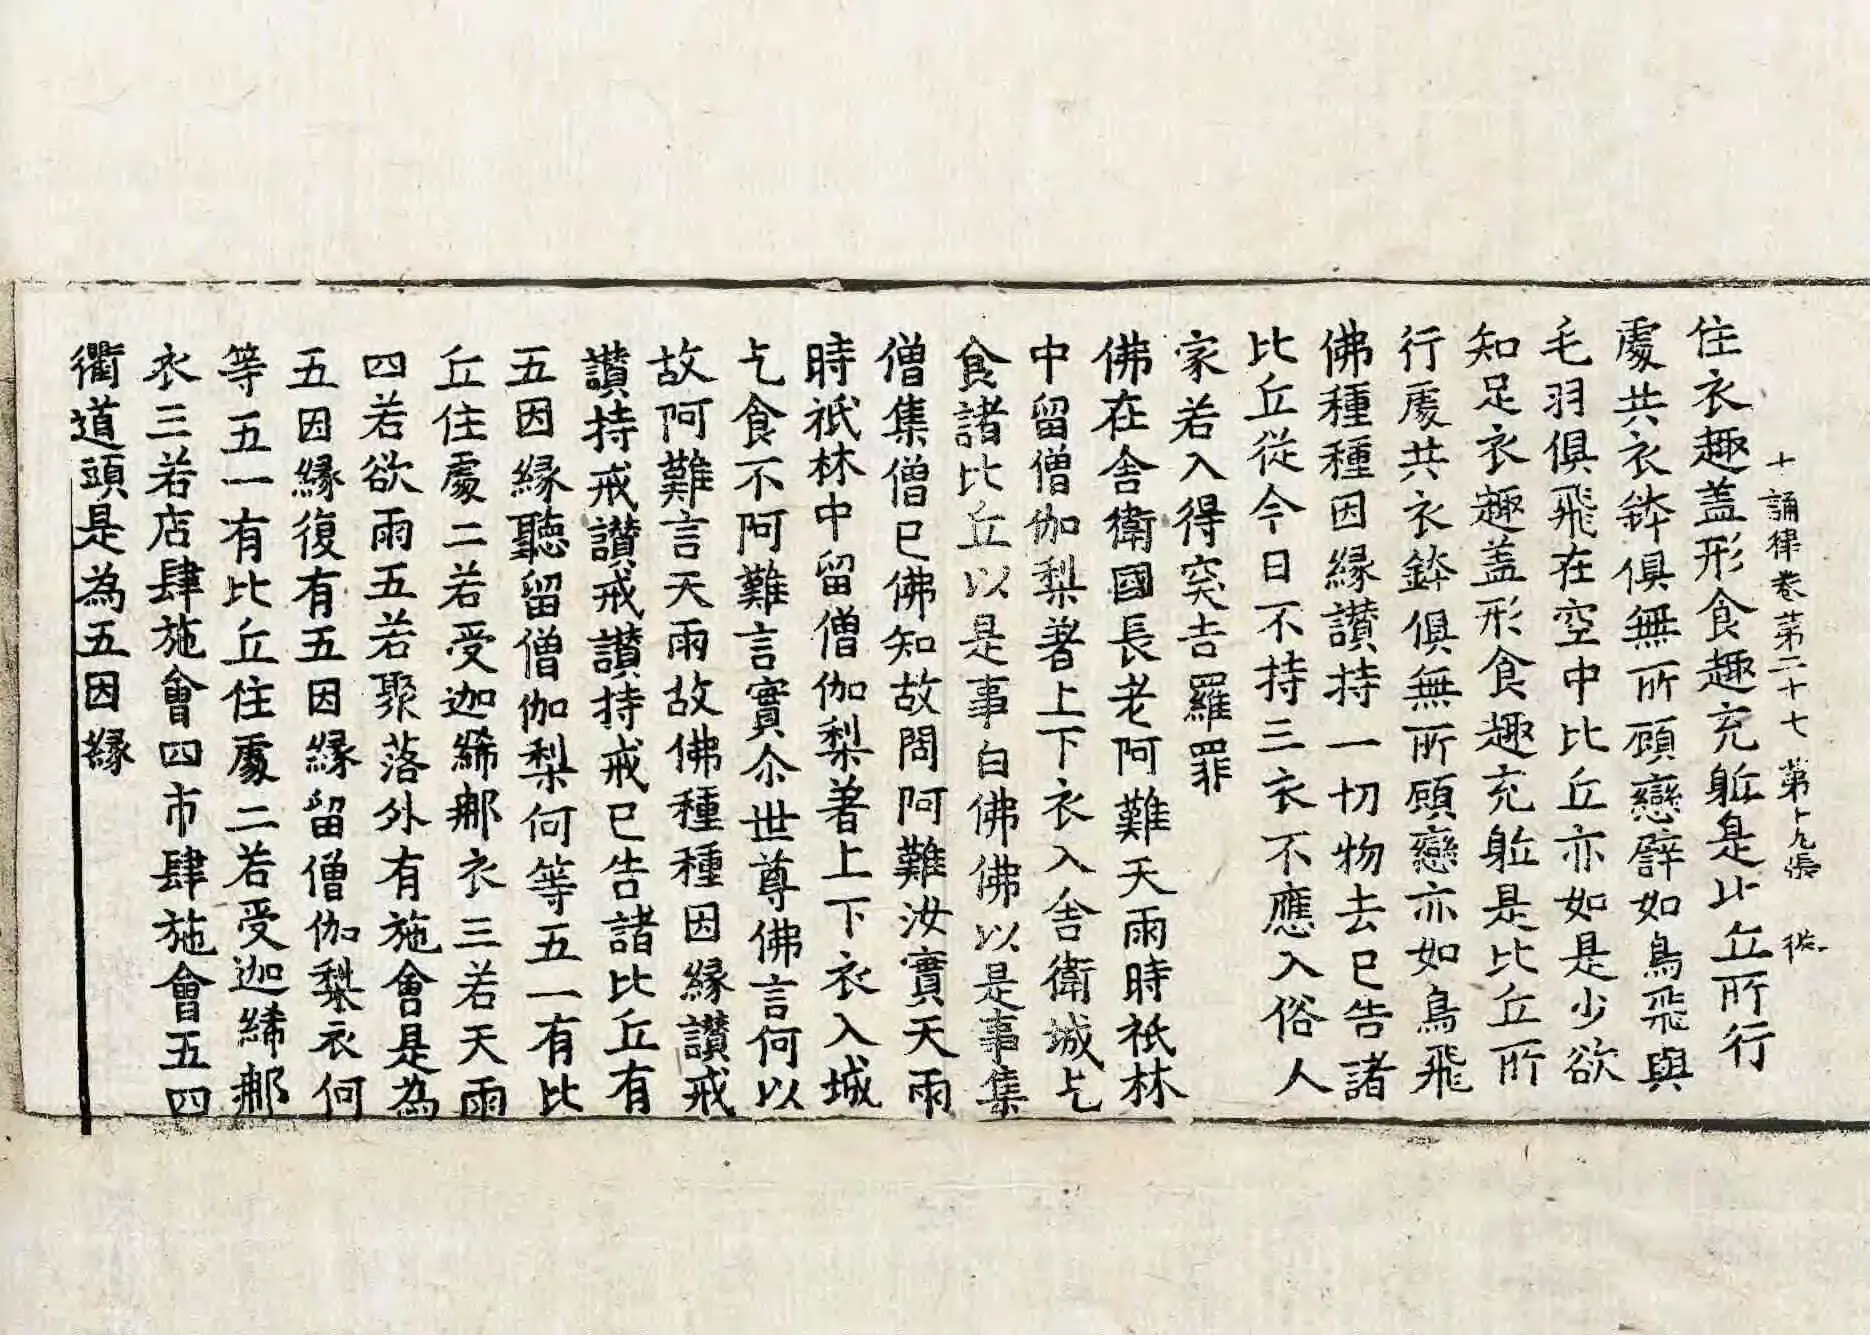 十誦律卷第二十七 第十九張
住衣趣盖形食趣充躯是比丘所行
處共衣鉢俱無所顧戀譬如鳥飛與
毛羽俱飛在空中比丘亦如是少欲
知足衣趣盖形食趣充躯是比丘所
行處共衣鉢俱無所顧戀亦如鳥飛
佛種種因縁讃持一切物去已告諸
比丘從今日不持三衣不應入俗人
家若入得突吉羅罪
佛在舍衛國長老阿難天雨時祇林
中留僧伽梨著上下衣入舍衛城乞
食諸比丘以是事白佛佛以是事集
僧集僧已佛知故問阿難汝實天雨
時祇林中留僧伽梨著上下衣入城
乞食不阿難言實尒世尊佛言何以
故阿難言天雨故佛種種因縁讃戒
讃持戒讃戒讃持戒已告諸比丘有
五因縁聽留僧伽梨何等五一有比
丘住處二若受迦絺那衣三若天雨
四若欲雨五若聚落外有施會是為
五因縁復有五因縁留僧伽梨衣何
等五一有比丘住處二若受迦絺那
衣三若店肆施會四市肆施會五四
衢道頭是為五因縁